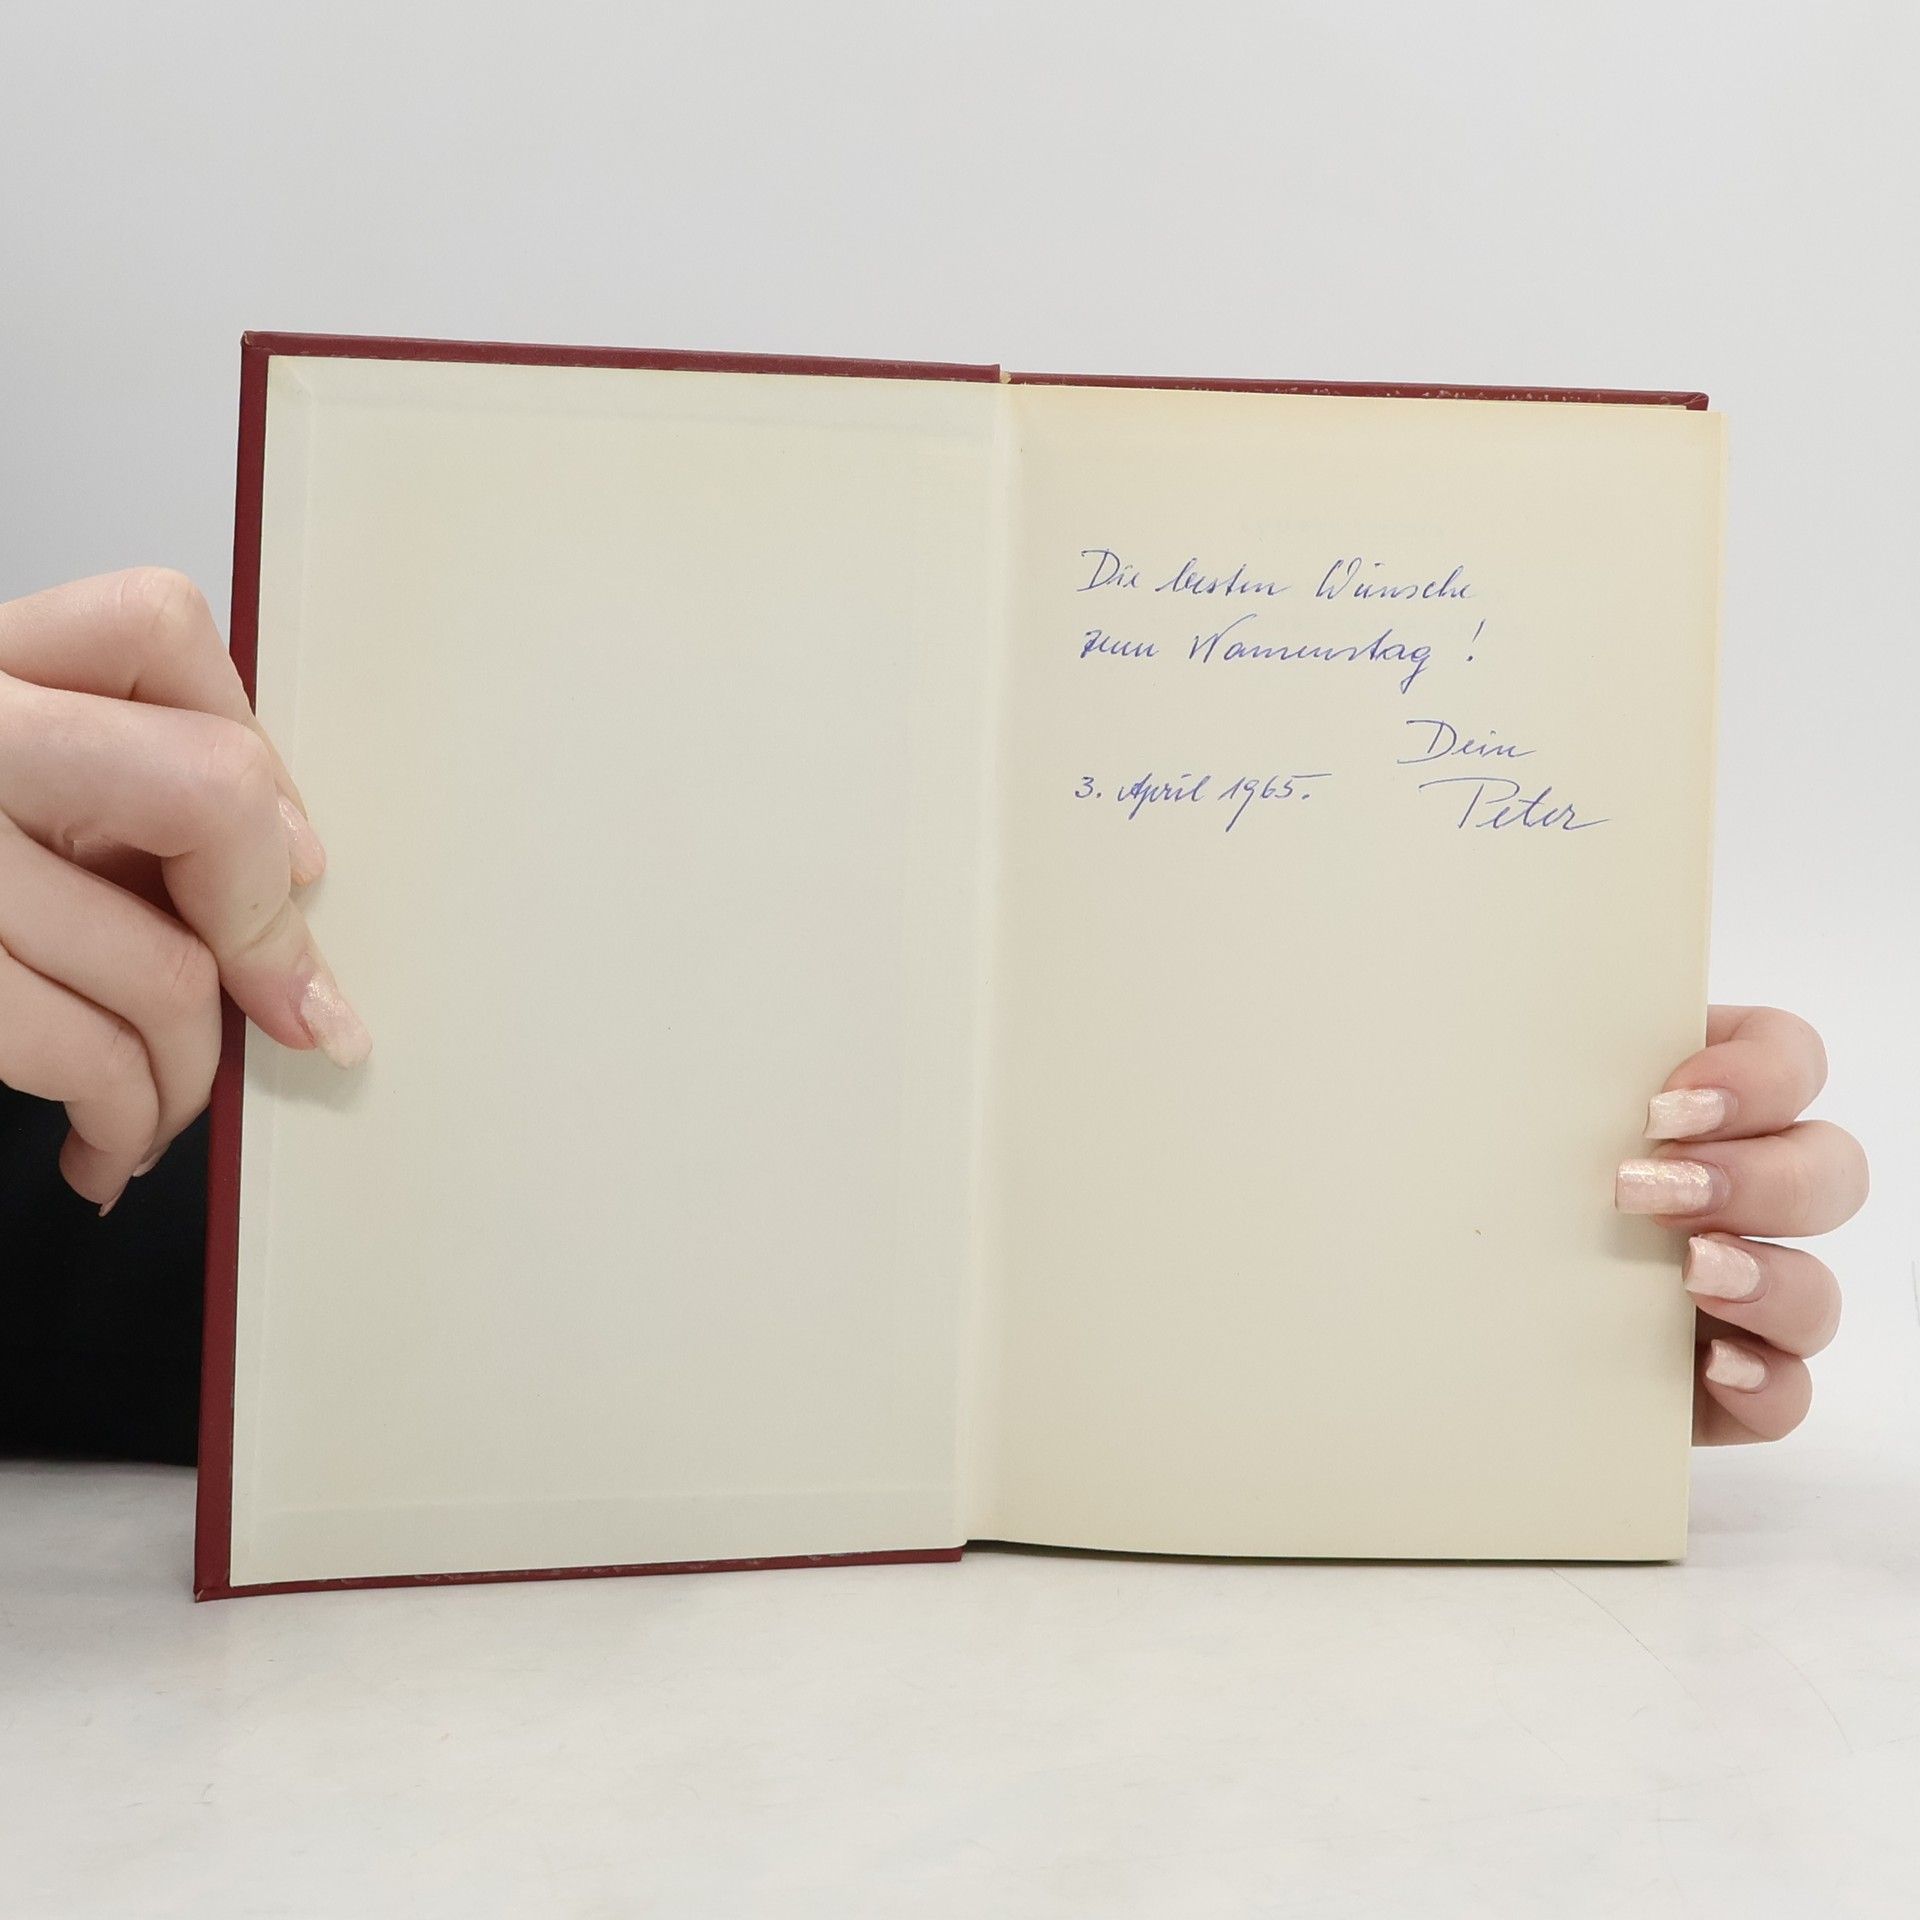 Die besten Wünsche
zum Namenstag!
Dein
3. April 1965.
Peter